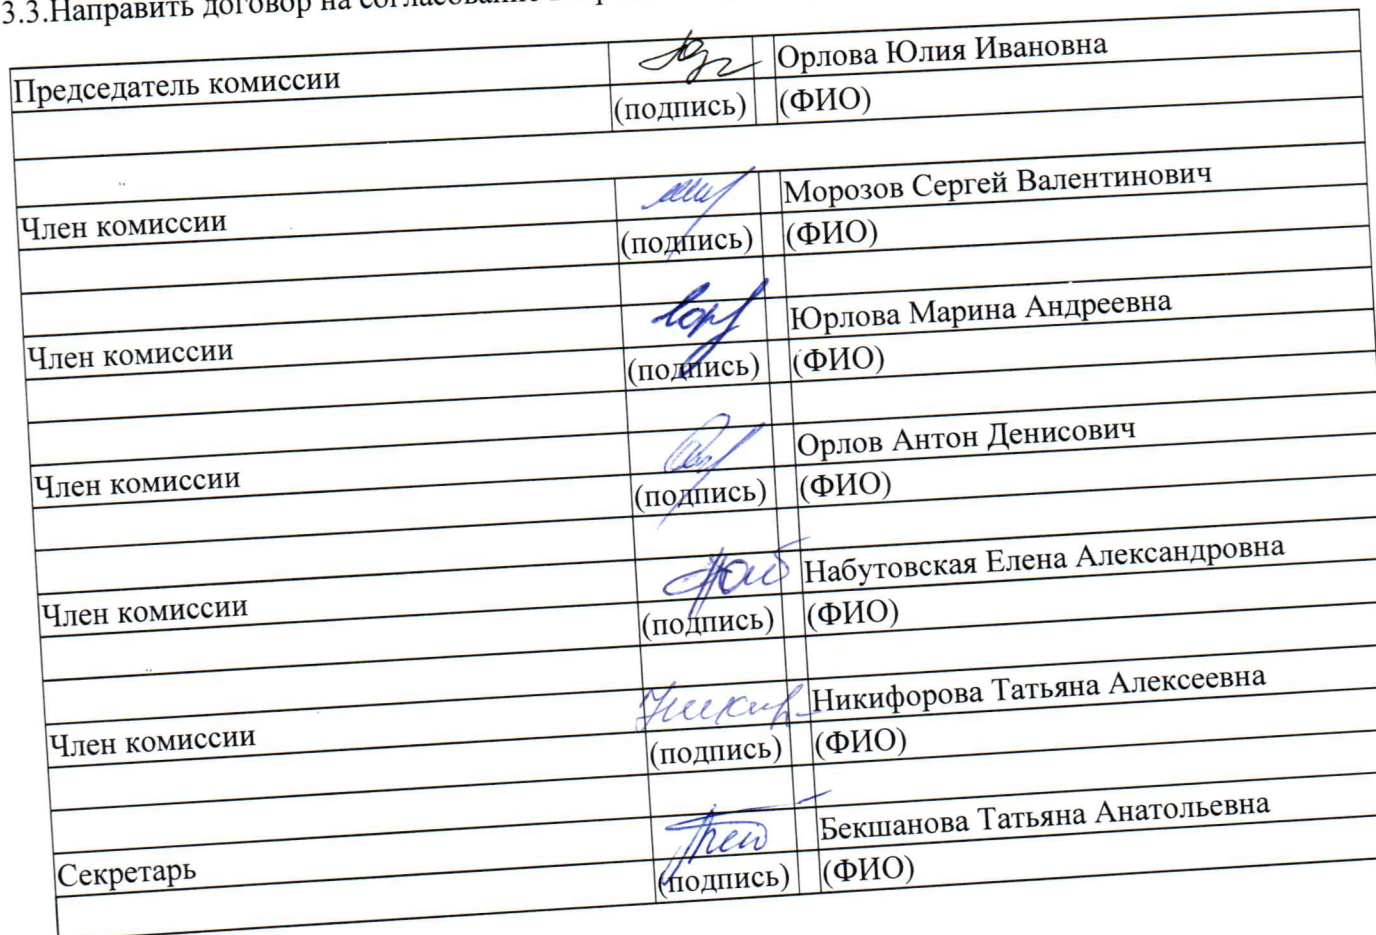 3.3.Направить договор на согласование
Председатель комиссии Орлова Юлия Ивановна
(подпись) (ФИО)
Член комиссии Морозов Сергей Валентинович
(подпись) (ФИО)
Член комиссии Юрлова Марина Андреевна
(подпись) (ФИО)
Член комиссии Орлов Антон Денисович
(подпись) (ФИО)
Член комиссии Набутовская Елена Александровна
(подпись) (ФИО)
Член комиссии Никифорова Татьяна Алексеевна
(подпись) (ФИО)
Секретарь Бекшанова Татьяна Анатольевна
(подпись) (ФИО)